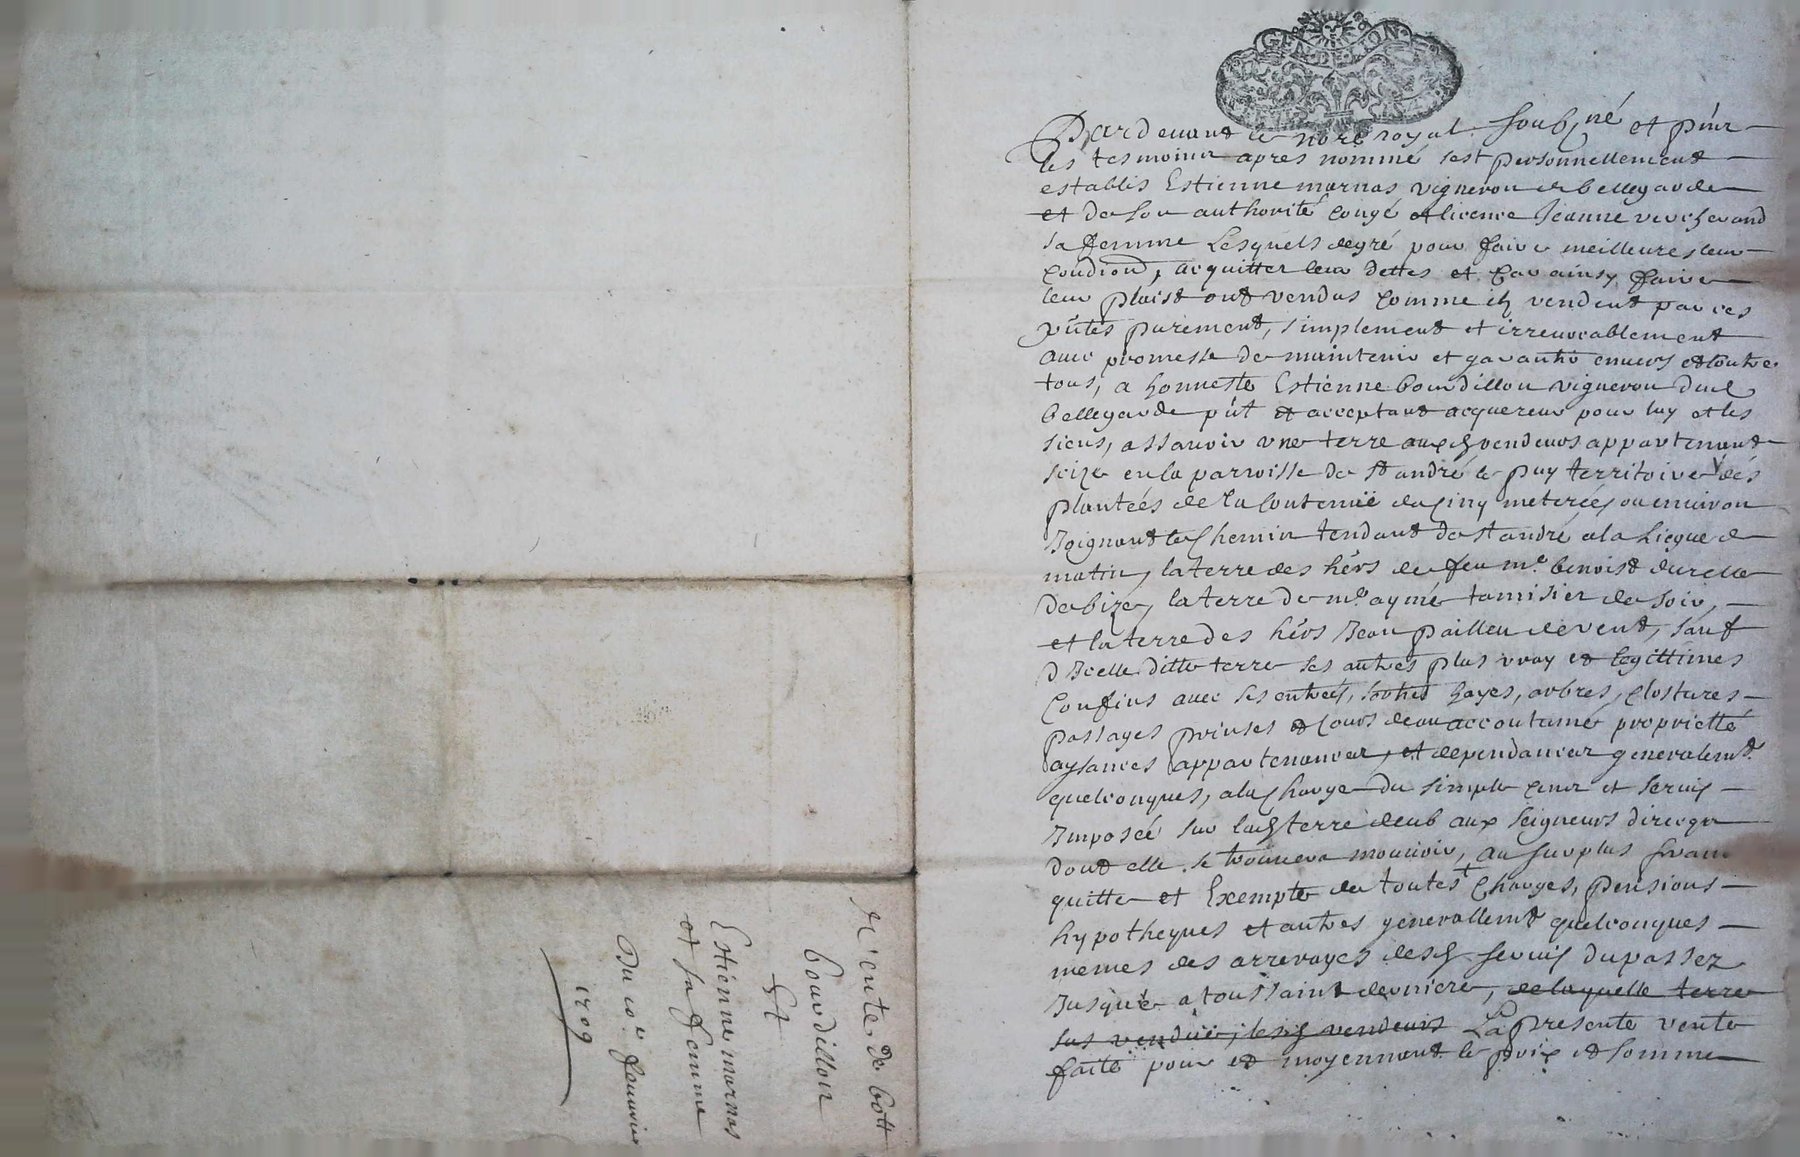 GEN DE LION
Pardevant le nore royal soubsné et pnt
les tesmoins apres nommé sest personnellement
establis Estienne marnas vigneron de bellegarde
et de son authorité congé et licence Jeanne
sa femme Lesquels degré pour faire meilleures leur
condion, acquitter leur dettes et car ainsy faire
leur plaist ont vendus comme ils vendent par ces
pntes purement, simplement et irrevocablement
avec promesse de maintenir et garantir envers et contre
tous, a honneste Estienne bourdillon vigneron dud
bellegarde pnt et acceptant acquereur pour luy et les
siens, assavoir une terre auxds vendeurs appartenant
scize en la parroisse de st andré le puy territoire des
plantées de la contenue de cinq meterées ou environ
Joignant le chemin tendant de st andré a la
matin, la terre des hérs de feu me benoist
de bize, la terre de me aymé tamisier de soir,
et la terre des hérs Jean pailleu de vent, sauf
d Icelle ditte terre ses autres plus vray et legittimes
Confins avec ses entrées, sorties hayes, arbres, clostures
passages prinses et cours deau accoutumé proprietté
aysances appartenances, et dependances generalemt
quelconques, a la charge du simple cens et servis
Imposéé sur lads terre deub aux seigneurs directs
dont elle se trouvera mouvoir, au surplus franc
quitte et Exempte de toutes charges, pensions
hypotheques et autres generallemt quelconques
memes des arrerages desds servis du passez
Jusques a toussaint derniere, de laquelle terre
sus vendue, lesds vendeurs La presente vente
faite pour et moyennant le prix et somme
Vente de
bourdillon
Et
Estienne marnas
et sa femme
Du 10e Janvier
1709